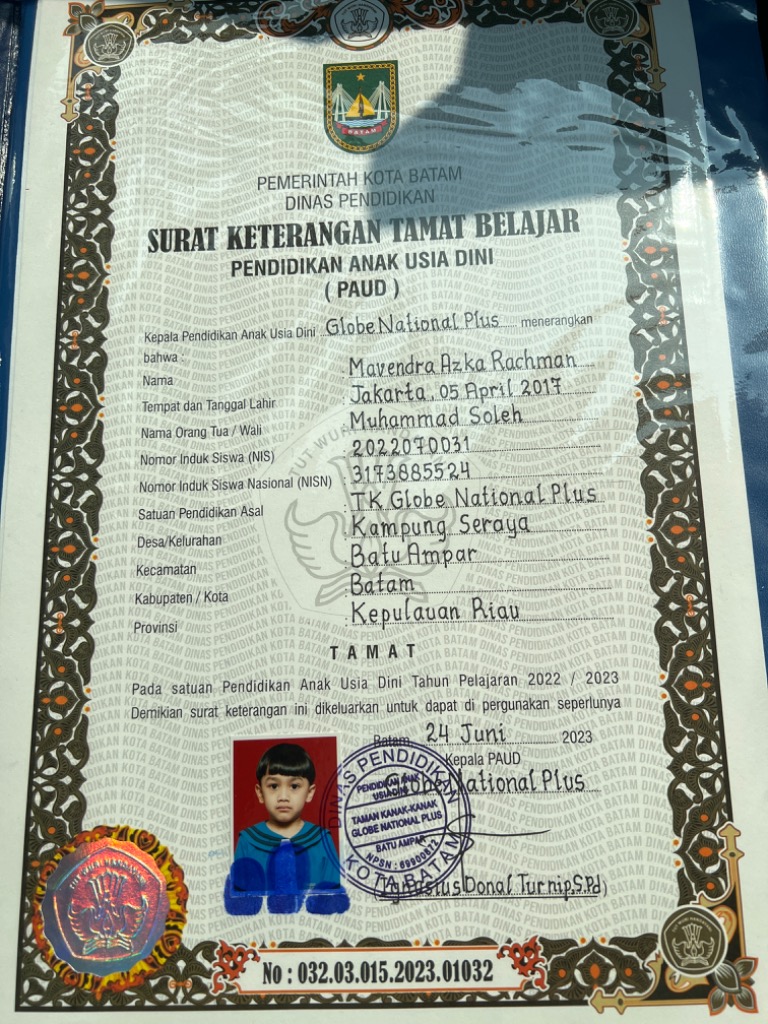 BATAM
PEMERINTAH KOTA BATAM
DINAS PENDIDIKAN
SURAT KETERANGAN TAMAT BELAJAR
PENDIDIKAN ANAK USIA DINI
( PAUD )
Kepala Pendidikan Anak Usia Dini Globe National Plus menerangkan
bahwa :
Nama : Mavendra Azka Rachman
Tempat dan Tanggal Lahir : Jakarta, 05 April 2017
Nama Orang Tua / Wali : Muhammad Soleh
Nomor Induk Siswa (NIS) : 2022070031
Nomor Induk Siswa Nasional (NISN) : 3173885524
Satuan Pendidikan Asal : TK Globe National Plus
Desa/Kelurahan : Kampung Seraya
Kecamatan : Batu Ampar
Kabupaten / Kota : Batam
Provinsi : Kepulauan Riau
TAMAT
Pada satuan Pendidikan Anak Usia Dini Tahun Pelajaran 2022 / 2023
Demikian surat keterangan ini dikeluarkan untuk dapat di pergunakan seperlunya
Batam 24 Juni 2023
Kepala PAUD
Globe National Plus
DINAS PENDIDIKAN
PENDIDIKAN ANAK
USIA DINI
TAMAN KANAK-KANAK
GLOBE NATIONAL PLUS
BATU AMPAR
NPSN : 69900872
KOTA BATAM
Donal Turnip S.Pd)
No : 032.03.015.2023.01032